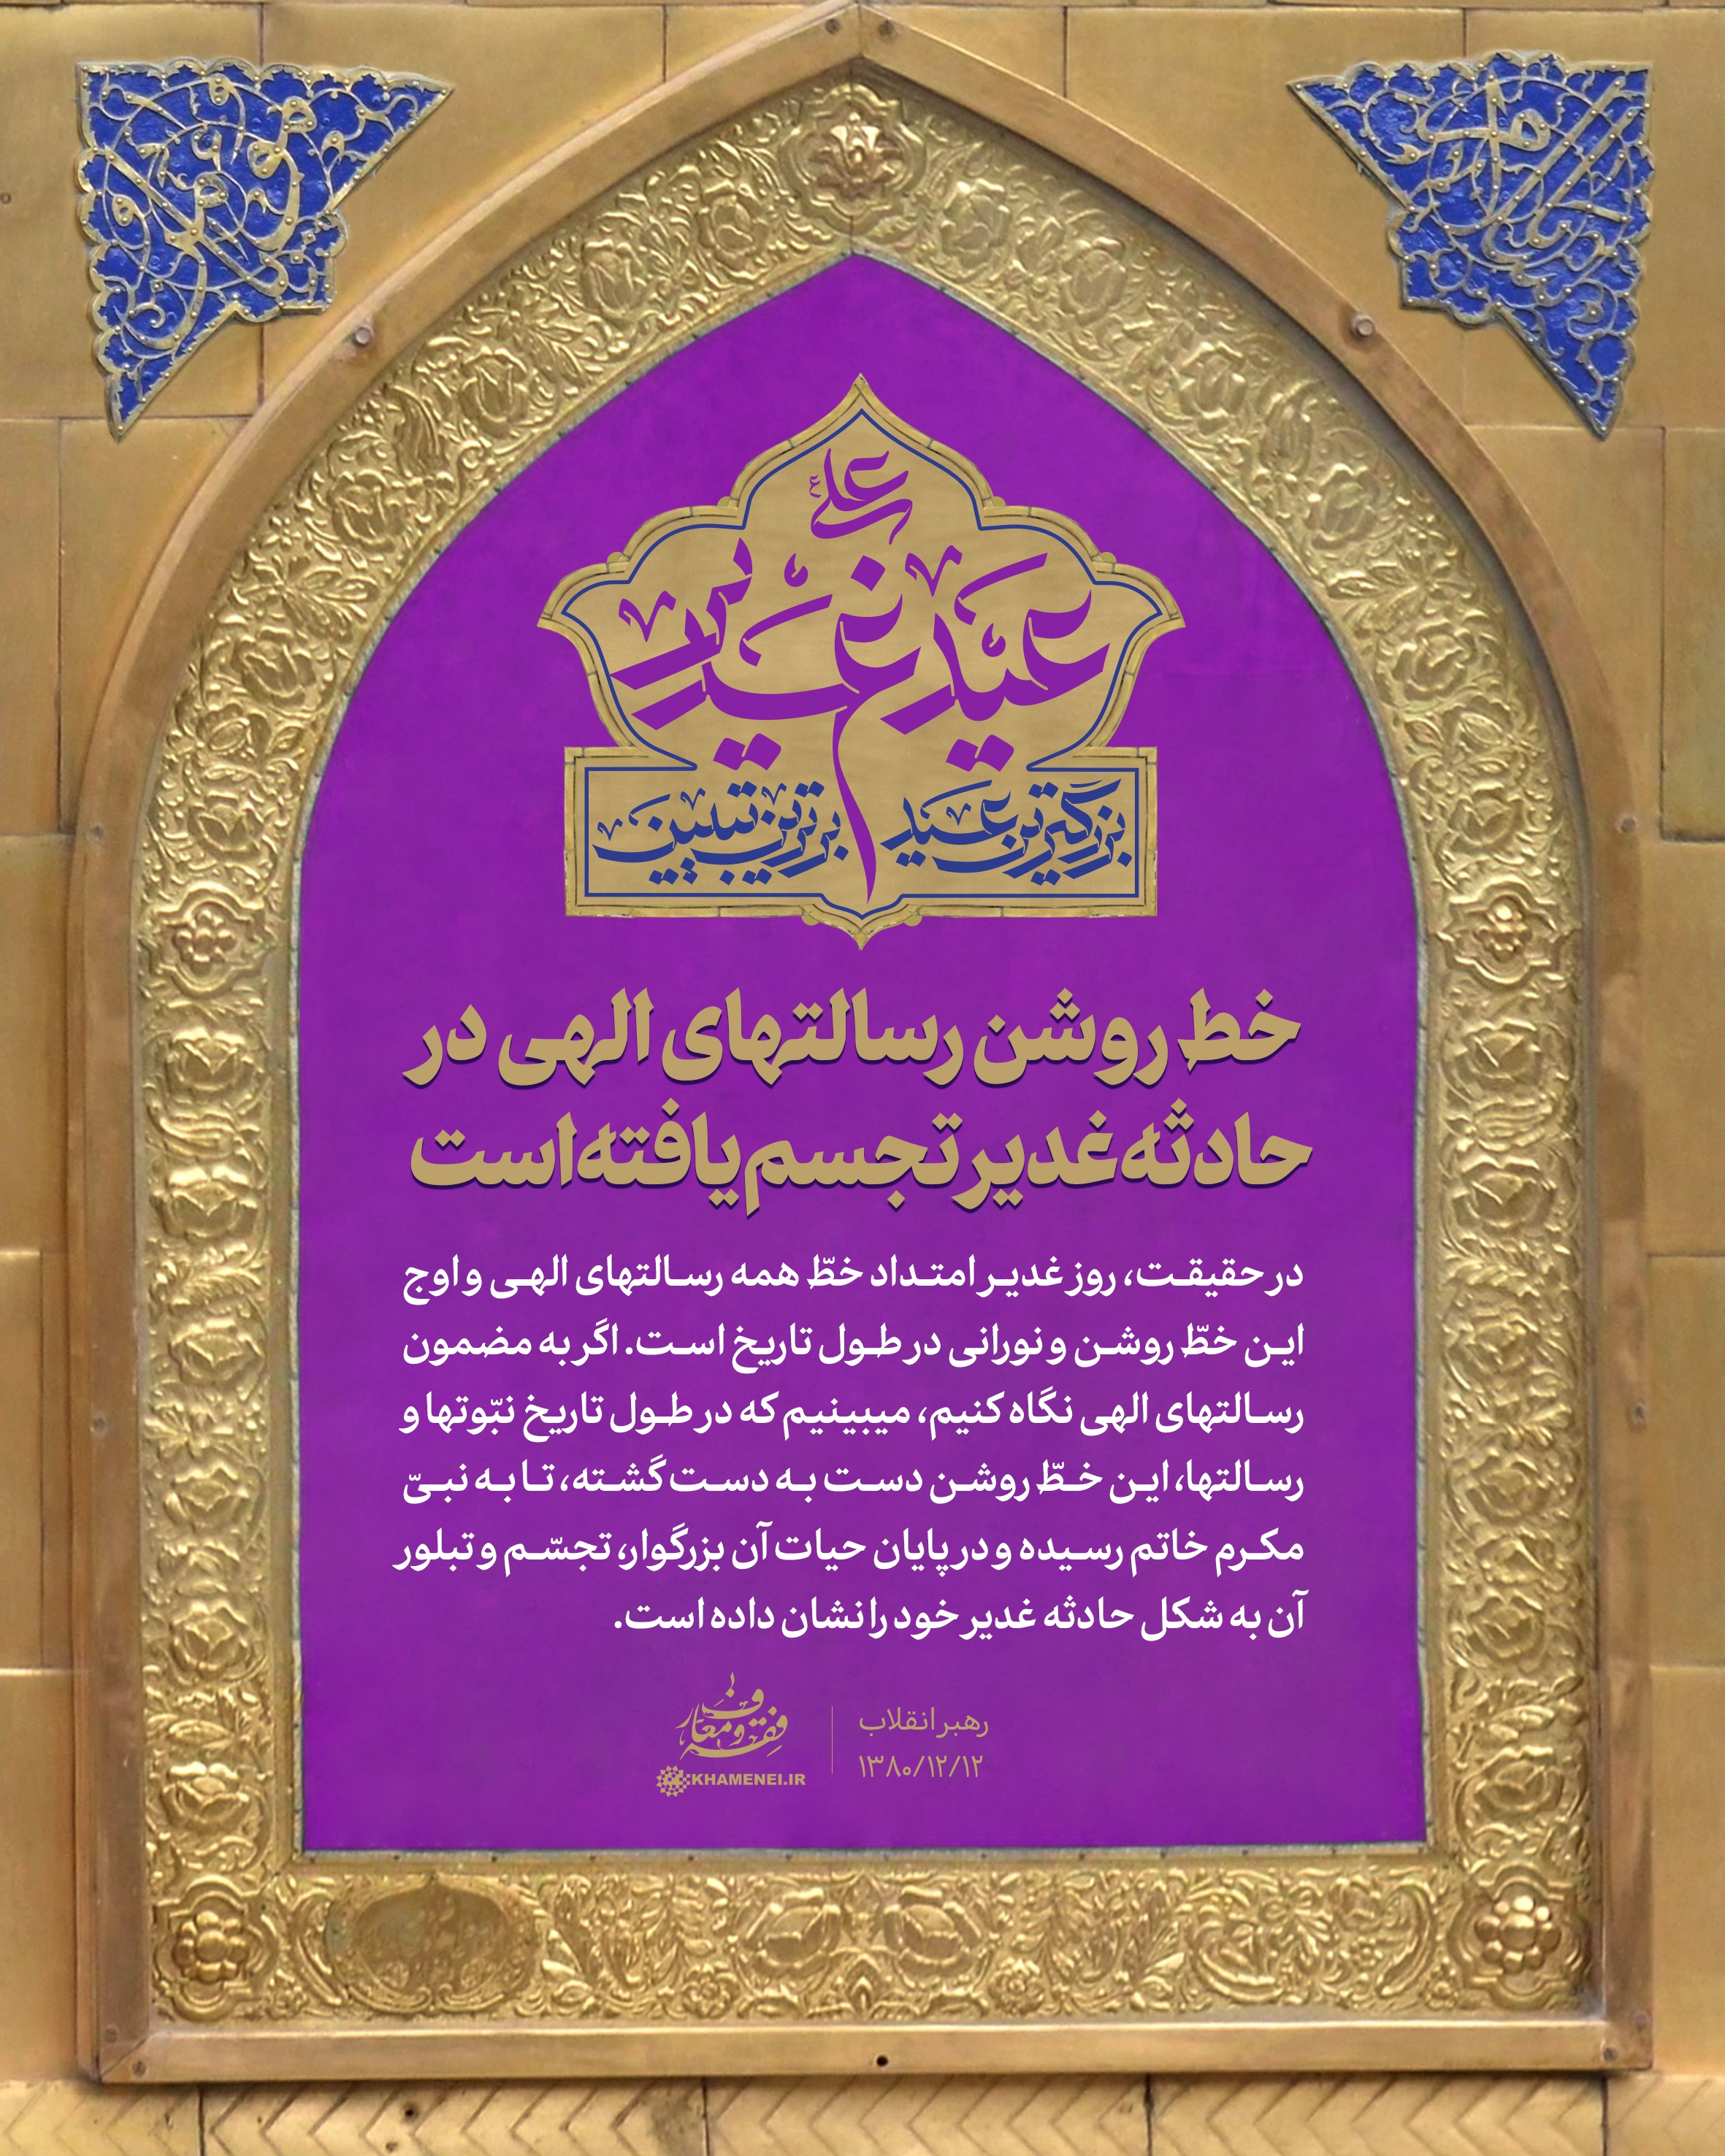 علی
عید غدیر
بزرگترین عید
برترین تبیین
خط روشن رسالتهای الهی در
حادثه غدیر تجسم یافته است
در حقیقت، روز غدیر امتداد خطّ همه رسالتهای الهی و اوج
این خطّ روشن و نورانی در طول تاریخ است. اگر به مضمون
رسالتهای الهی نگاه کنیم، میبینیم که در طول تاریخ نبّوتها و
رسالتها، این خطّ روشن دست به دست گشته، تا به نبیّ
مکرم خاتم رسیده و در پایان حیات آن بزرگوار، تجسّم و تبلور
آن به شکل حادثه غدیر خود را نشان داده است.
رهبر انقلاب
۱۳۸۰/۱۲/۱۲
فقه و معارف
KHAMENEI.IR